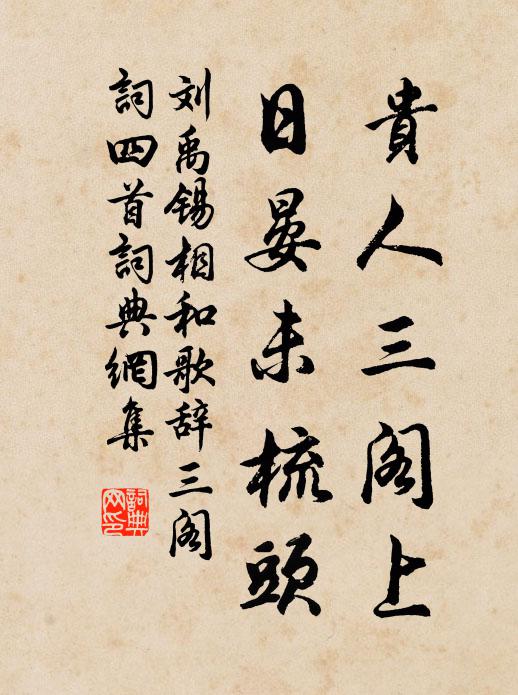 貴人三阁上
日晏未梳頭
刘禹锡相和歌辞三阁
詞四首詞典網集
詞典
网印